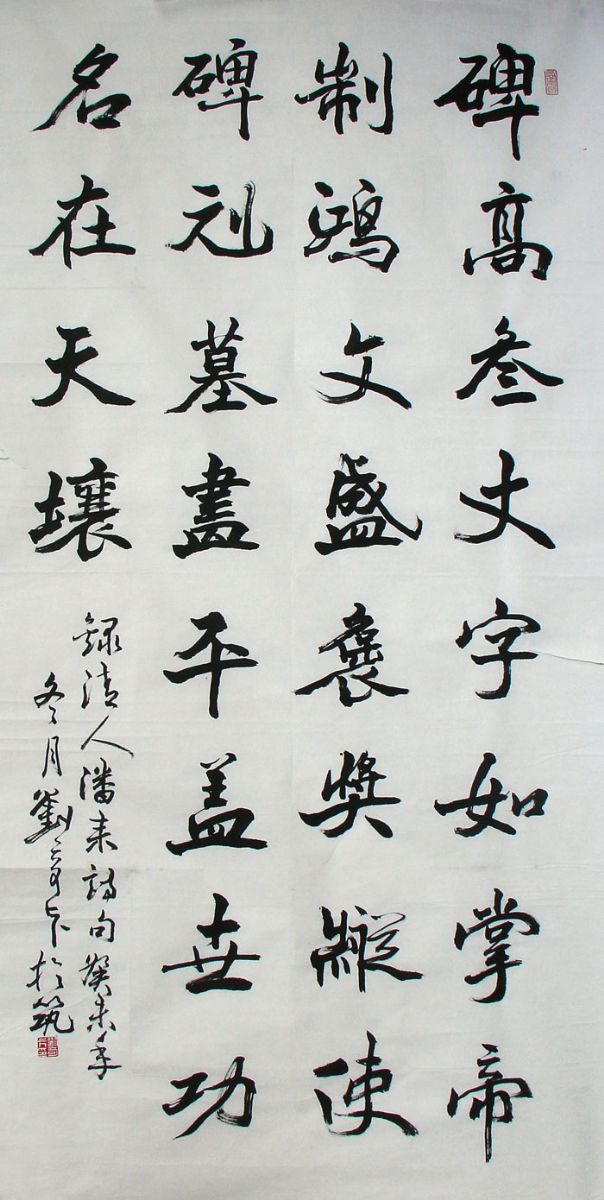 碑高叁丈字如掌帝
制鴻文盛褒奬縱使
碑刓墓盡平盖世功
名在天壤
録清人潘耒詩句癸未年
冬月劉於筑